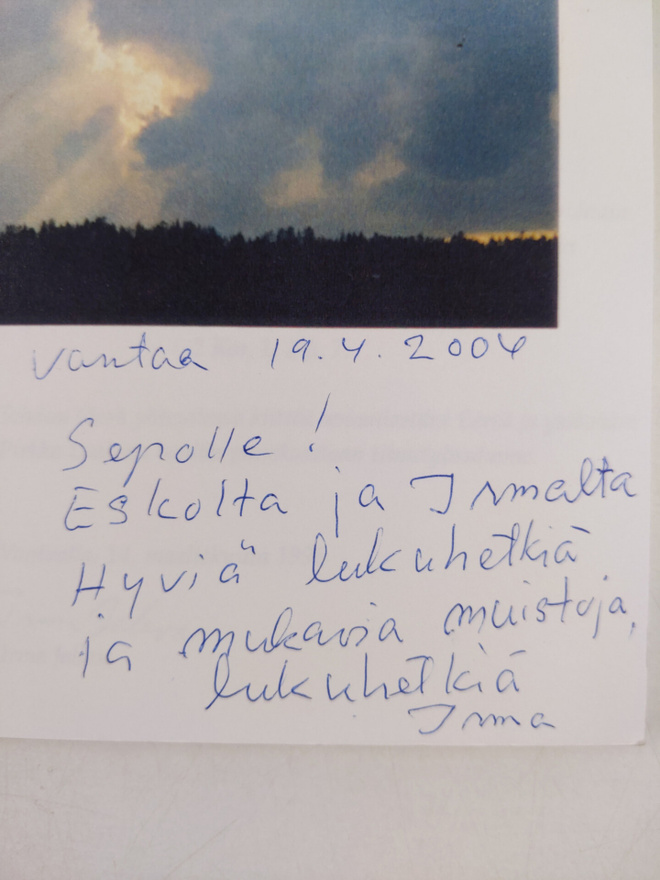 Vantaa 19.4.2006
Sepolle!
Eskolta ja Irmalta
Hyviä lukuhetkiä
ja mukavia muistoja,
lukuhetkiä
Irma